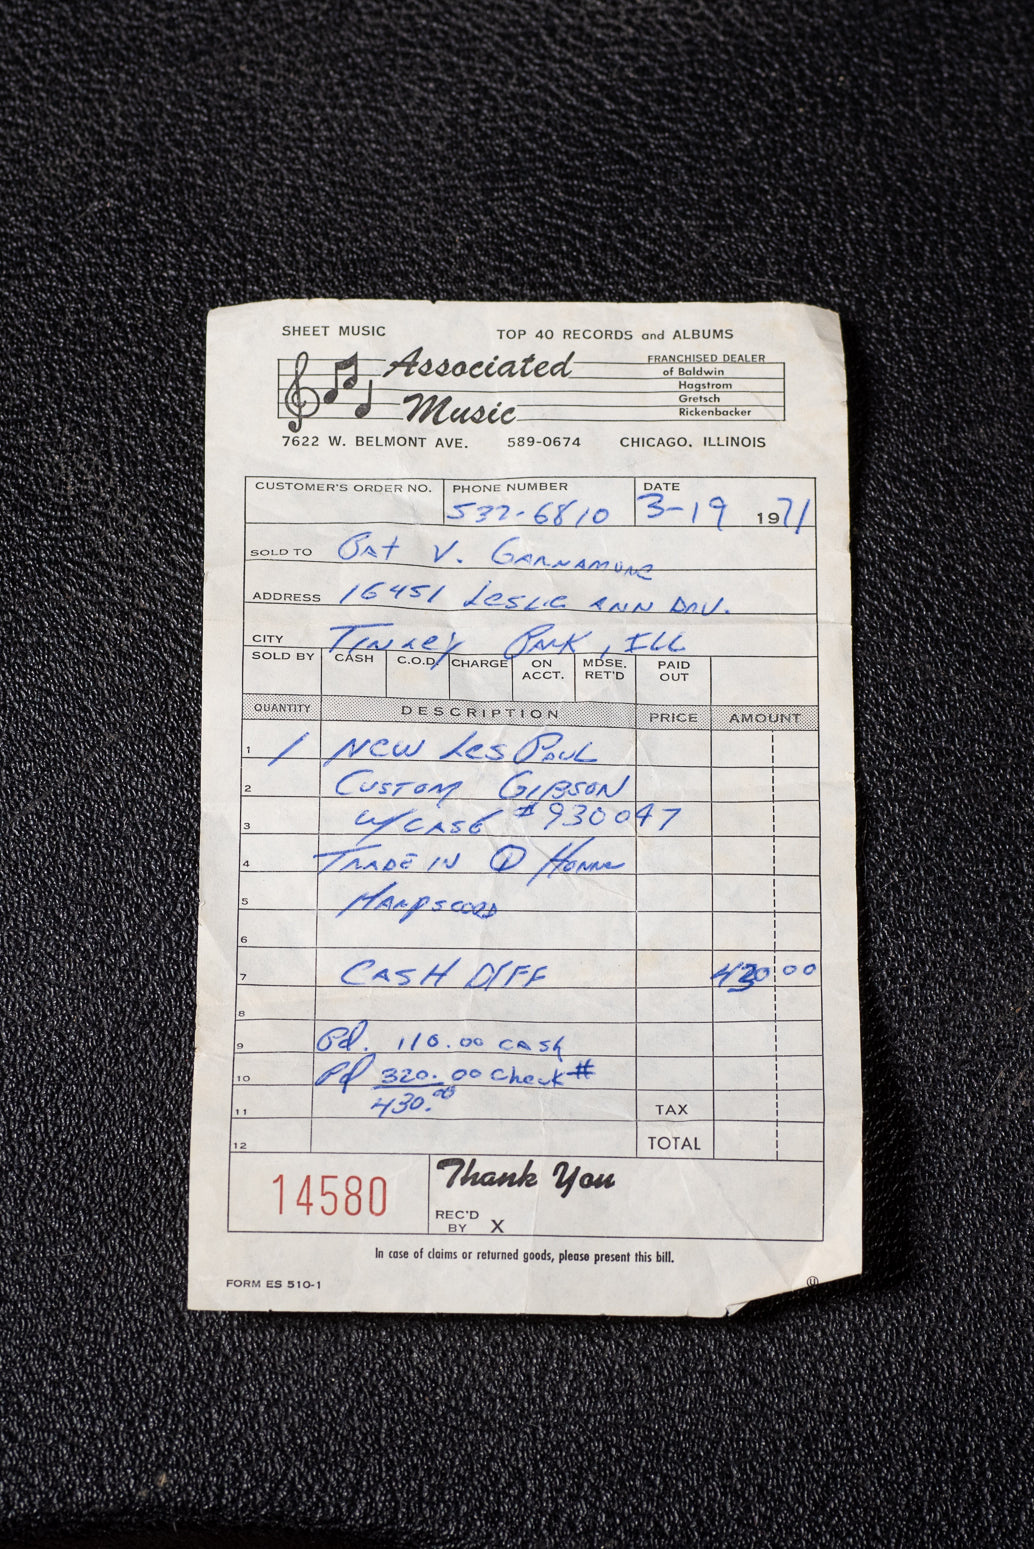 SHEET MUSIC TOP 40 RECORDS and ALBUMS
Associated Music
FRANCHISED DEALER
of Baldwin
Hagstrom
Gretsch
Rickenbacker
7622 W. BELMONT AVE. 589-0674 CHICAGO, ILLINOIS
CUSTOMER'S ORDER NO. PHONE NUMBER DATE
532-6810 3-19 1971
SOLD TO Pat V.
ADDRESS 16451 Leslie Ann Drv.
CITY Tinley Park, Ill
SOLD BY CASH C.O.D. CHARGE ON ACCT. MDSE. RET'D PAID OUT
QUANTITY DESCRIPTION PRICE AMOUNT
1 1 New Les Paul
2 Custom Gibson
3 w/case #930047
4 Trade in 1
5
6
7 Cash Diff 430 00
8
9 Pd. 110.00 cash
10 Pd 320.00 check #
11 430.00 TAX
12 TOTAL
14580 Thank You
REC'D BY X
In case of claims or returned goods, please present this bill.
FORM ES 510-1